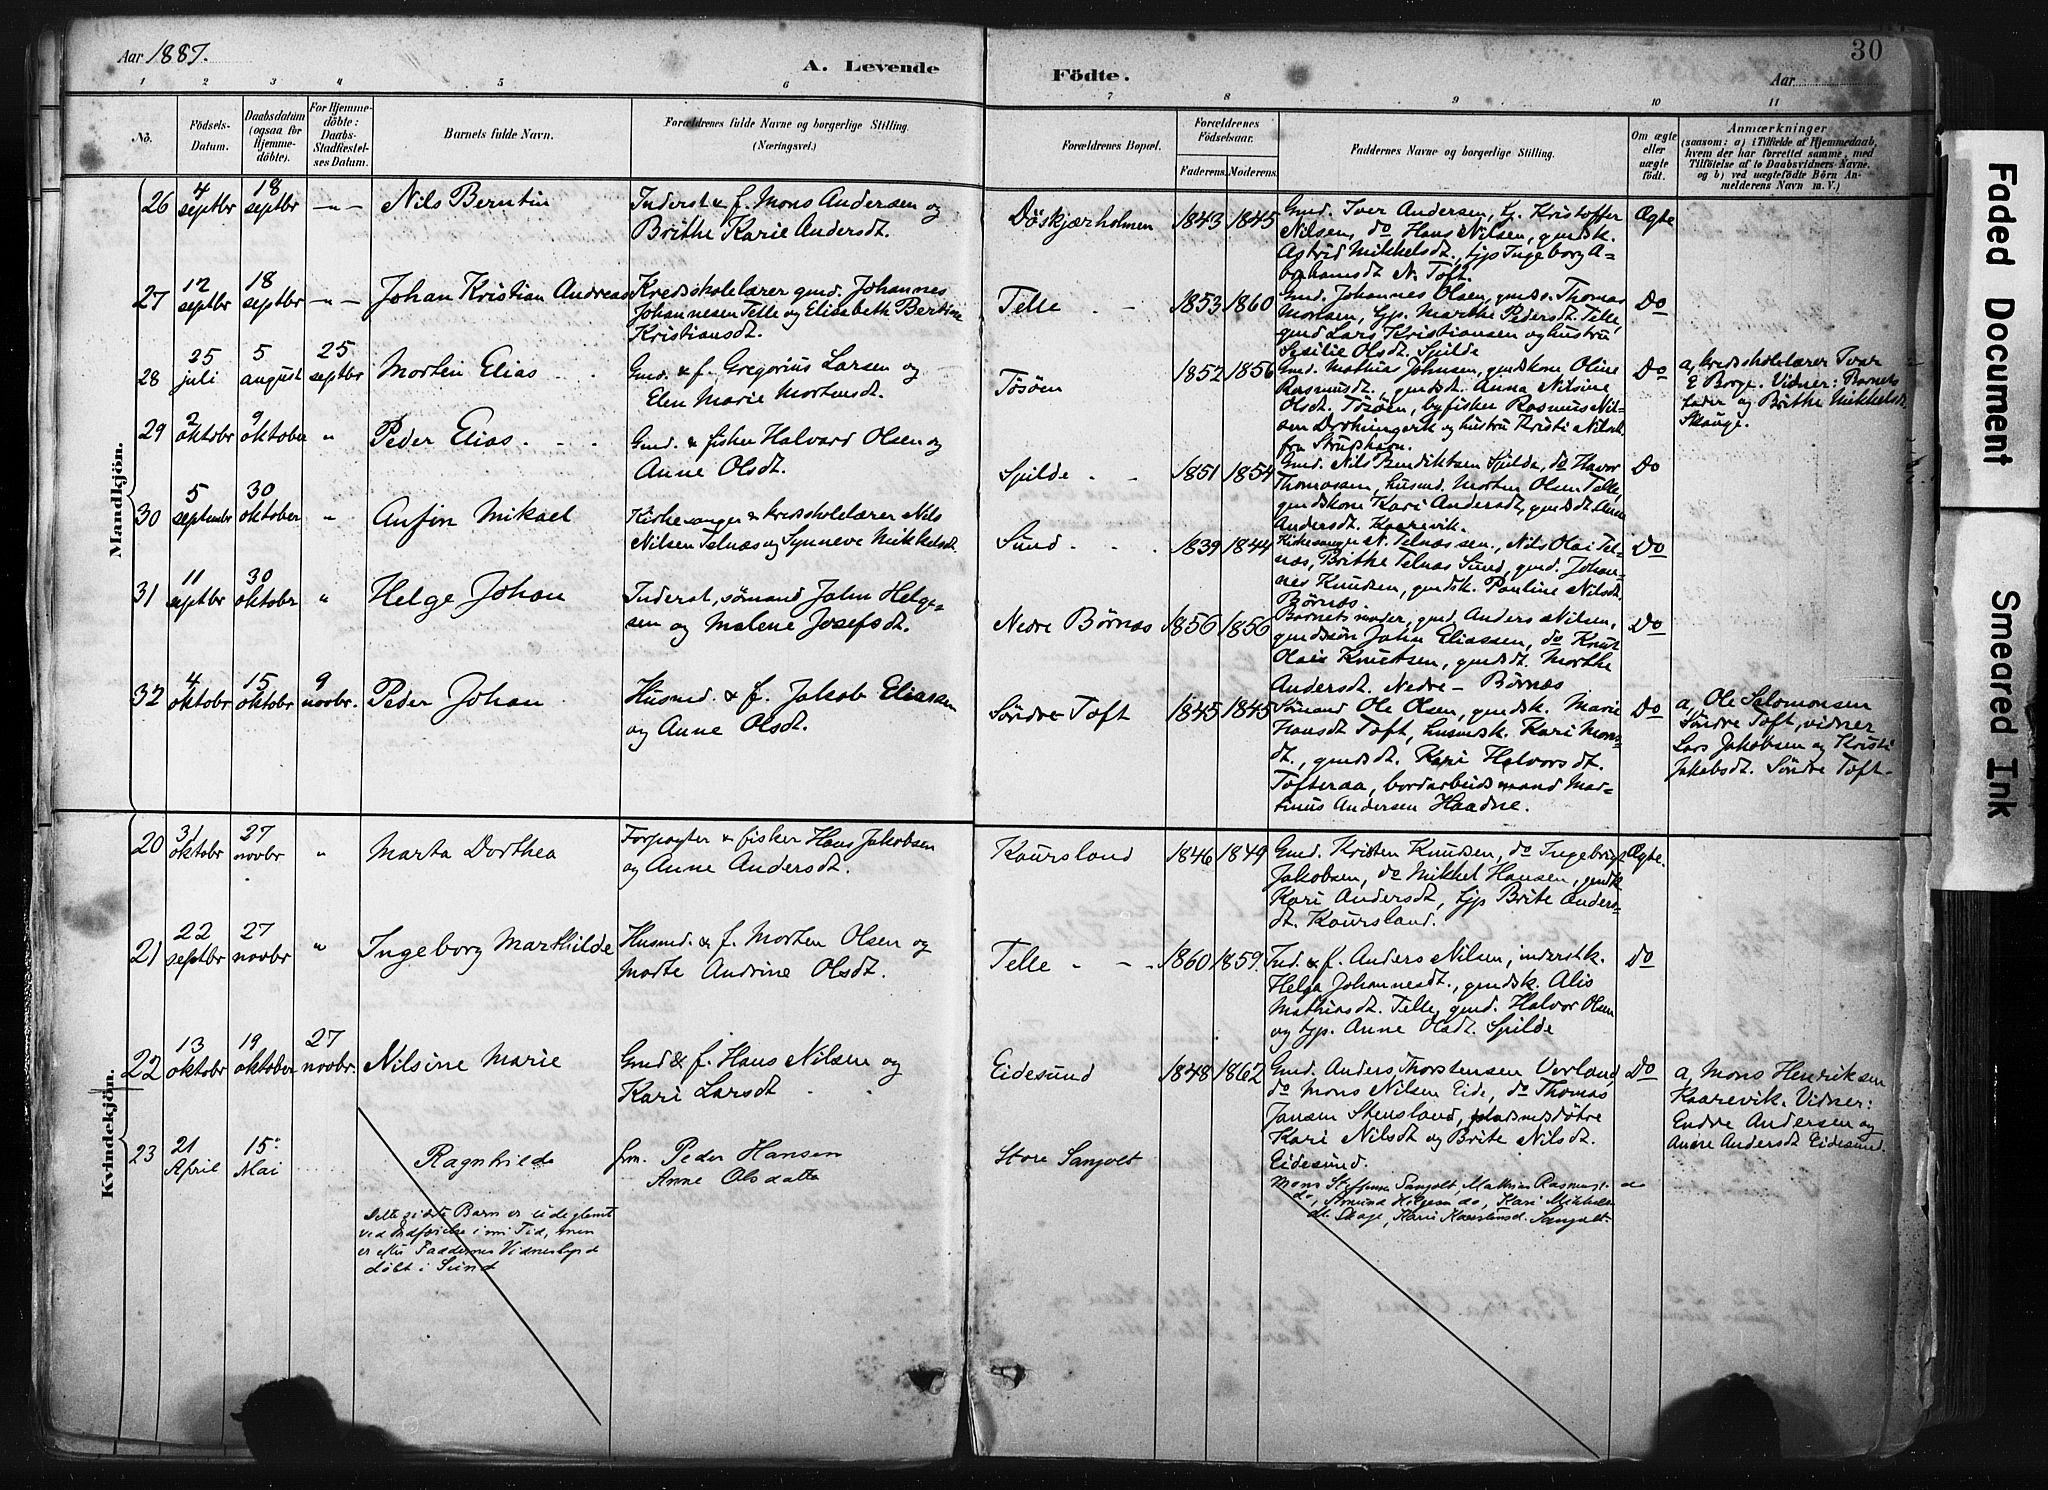 Aar 1887.
A. Levende Födte.
Aar
30
1 2 3 4 5 6 7 8 9 10 11
No.
Födsels-Datum.
Daabsdatum (ogsaa for Hjemmedöbte).
For Hjemmedöbte: Daabs-Stadfæstelses Datum.
Barnets fulde Navn.
Forældrenes fulde Navne og borgerlige Stilling. (Næringsvei.)
Forældrenes Bopæl.
Forældrenes Födselsaar.
Faderens. Moderens.
Faddernes Navne og borgerlige Stilling.
Om ægte eller uægte födt.
Anmærkninger
(saasom: a) i Tilfælde af Hjemmedaab, hvem der har forrettet samme, med Tilföielse af to Daabsvidners Navne, og b) ved uægtefödte Börn Anmelderens Navn m. V.)
Mandkjön.
26 4 septbr 18 septbr Nils Berntin
Inderst & f. Mons Andersen og
Brithe Karie Andersdt.
Döskjærholmen 1843 1845
Gmd. Iver Andersen, Kristoffer
Nilsen, do Hans Nilsen, gmdsk.
Astrid Mikkelsdt., tjp Ingeborg A-
brahamsdt N. Toft.
Ægte
27 12 septbr 18 septbr Johan Kristian Andreas
Kredsskolelærer gmd. Johannes
Johannesen Telle og Elisabeth Bertine
Kristiansdt.
Telle 1853 1860
Gmd. Johannes Olsen, gmds. Thomas
Monsen, tjp. Marthe Pedersdt. Telle,
gmd Lars Kristiansen og hustru
Sesilie Olsdt. Spilde
Do
28 25 juli 5 august 25 septbr Morten Elias
Gmd. & f. Gregorius Larsen og
Elen Marie Mortensdt.
Tösöen 1852 1856
Gmd. Mathias Johnsen, gmdskone Oline
Rasmusdt., gmdsdt. Anna Nilsine
Olsdt. Tösöen, byfisker Rasmus Nil-
sen og hustru Kristi Nilsdt.
fra Strushavn.
Do
a, kredsskolelærer Ivar
E Borge. Vidner: Barnets
fader og Brithe Mikkelsdt
Skauge.
29 2 oktobr 9 oktober Peder Elias
Gmd. & fisker Halvard Olsen og
Anne Olsdt.
Spilde 1851 1854
Gmd. Nils Bendiktsen Spilde, do Havor
Thomassen, husmd. Morten Olsen Telle,
gmdskone Kari Andersdt, gmdsdt Anne
Andersdt. Kaarevik.
Do
30 5 septembr 30 oktober Anfin Mikael
Kirkesanger & kredsskolelærer Nils
Nilsen Telnæs og Synneve Mikkelsdt.
Sund 1839 1844
Kirkesanger N. Telnæs sen., Nils Olai Tel-
næs, Brithe Telnæs Sund, gmd. Johan-
nes Knudsen, gmdsk. Pauline Nilsdt.
Börnæs.
Do
31 11 septbr 30 oktober Helge Johan
Inderst, sömand John Helge-
sen og Malene Josefsdt.
Nedre Börnæs 1856 1856
Barnets moder, gmd. Anders Nilsen,
gmdssön John Eliassen, do Knut
Olai Knutsen, gmdsdt. Marthe
Andersdt. Nedre-Börnæs
Do
32 4 oktobr 15 oktobr 9 novbr. Peder Johan
Husmd. & f. Jakob Eliassen
og Anne Olsdt.
Söndre Toft 1845 1845
Sömand Ole Olsen, gmdsk. Marie
Hansdt Toft, husmsk. Kari Mons-
dt., gmdsdt. Kari Halvorsdt.
Tofteraa, bordarbeidsmand Mar-
tinus Andersen Haadne.
Do
a, Ole Salomonsen
Söndre Toft, vidner
Lars Jakobsen og Kristi
Jakobsdt. Söndre Toft.
Kvindekjön.
20 31 oktobr 27 novbr Marta Dorthea
Forpagter & fisker Hans Jakobsen
og Anne Andersdt.
Kaursland 1846 1849
Gmd. Kristen Knudsen, do Ingebrigt
Jakobsen, do Mikkel Hansen, gmdsk
Kari Andersdt, tjp Brite Anders-
dt. Kaursland.
Ægte.
21 22 septbr 27 novbr Ingeborg Marthilde
Husmd. & f. Morten Olsen og
Marte Andrine Olsdt.
Telle 1860 1859.
Ind. & f. Anders Nilsen, inderstk.
Helga Johannesdt., gmdsk. Alis
Mathiasdt. Telle, gmd. Halvor Olsen
og tjp. Anne Olsdt. Spilde
Do
22 13 oktobr 19 oktober 27 novbr. Nilsine Marie
Gmd & f. Hans Nilsen og
Kari Larsdt
Eidesund 1848 1862
Gmd. Anders Thorstensen Vorland,
do Mons Nilsen Eide, do Thomas
Jansen Stensland, pladsmsdøtre
Kari Nilsdt og Brite Nilsdt.
Eidesund.
Do
a, Mons Henriksen
Kaarevik. Vidner:
Endre Andersen og
Anne Andersdt Eidesund.
23 21 April 15 Mai Ragnhilde
Peder Hansen
Anne Olsdatter
Store Sangolt
Mons Steffensen Sangolt, Mathias Rasmus
do, Amund Helgesen do, Kari Mikkels
dt. Skage, Kari Sangolt
Dette sidste Barn er udeglemt
ved Indførelse i min Tid, men
er efter Faddernes Vidnesbyrd
døbt i Sund
Faded Document
Smeared Ink